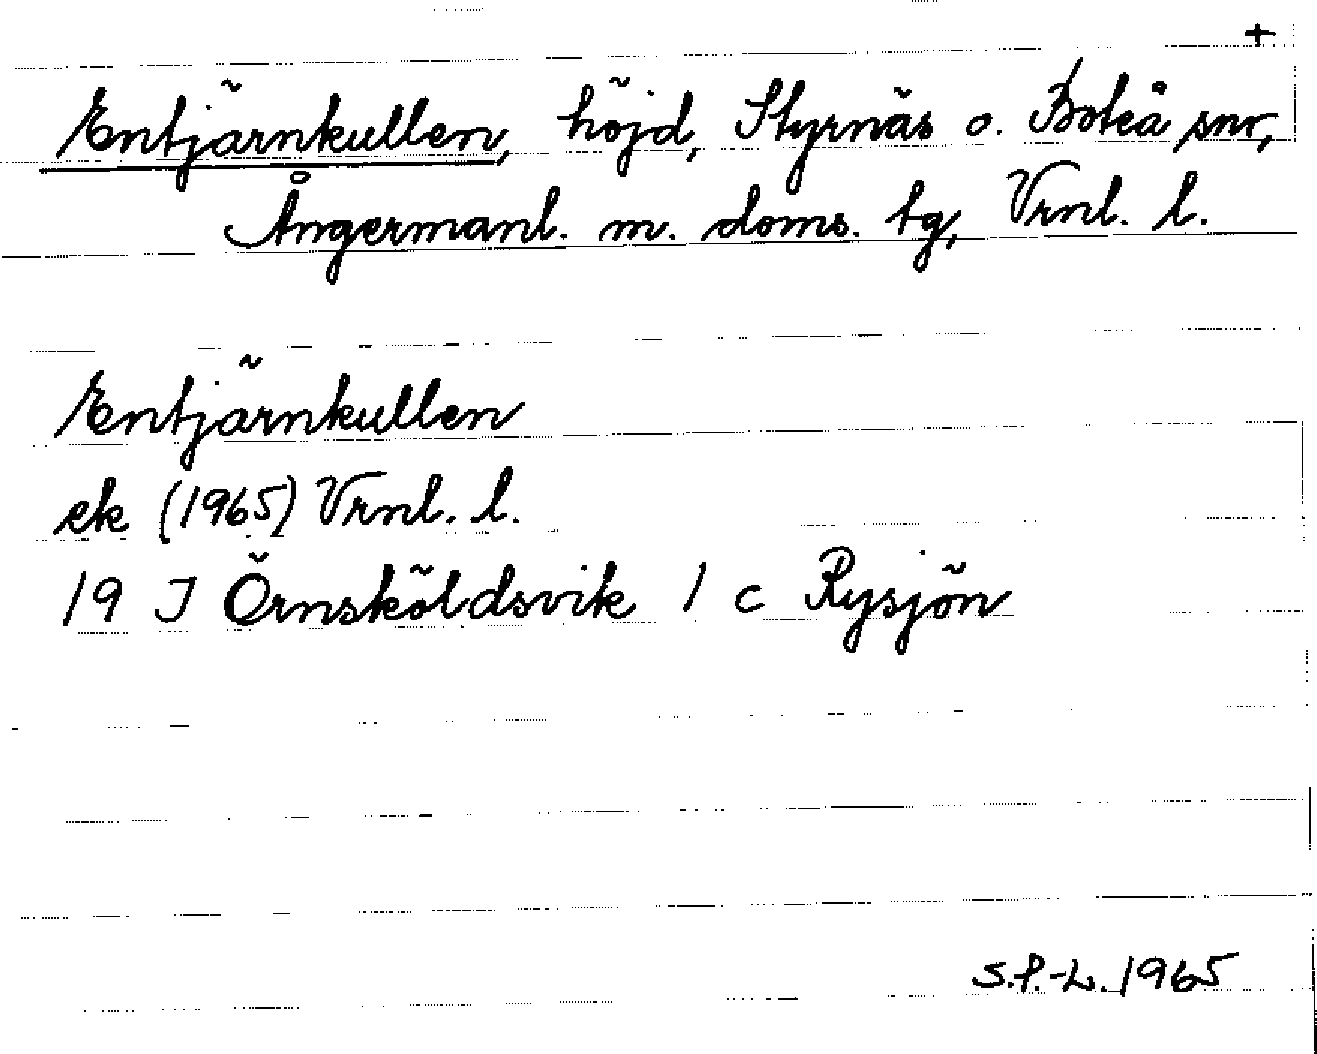 +
Entjärnkullen, höjd, Styrnäs o. Boteå snr,
Ångermanl. m. doms. tg, Vrnl. l.
Entjärnkullen
ek (1965) Vrnl. l.
19 J Örnsköldsvik 1 c Rysjön
S.P.-L. 1965